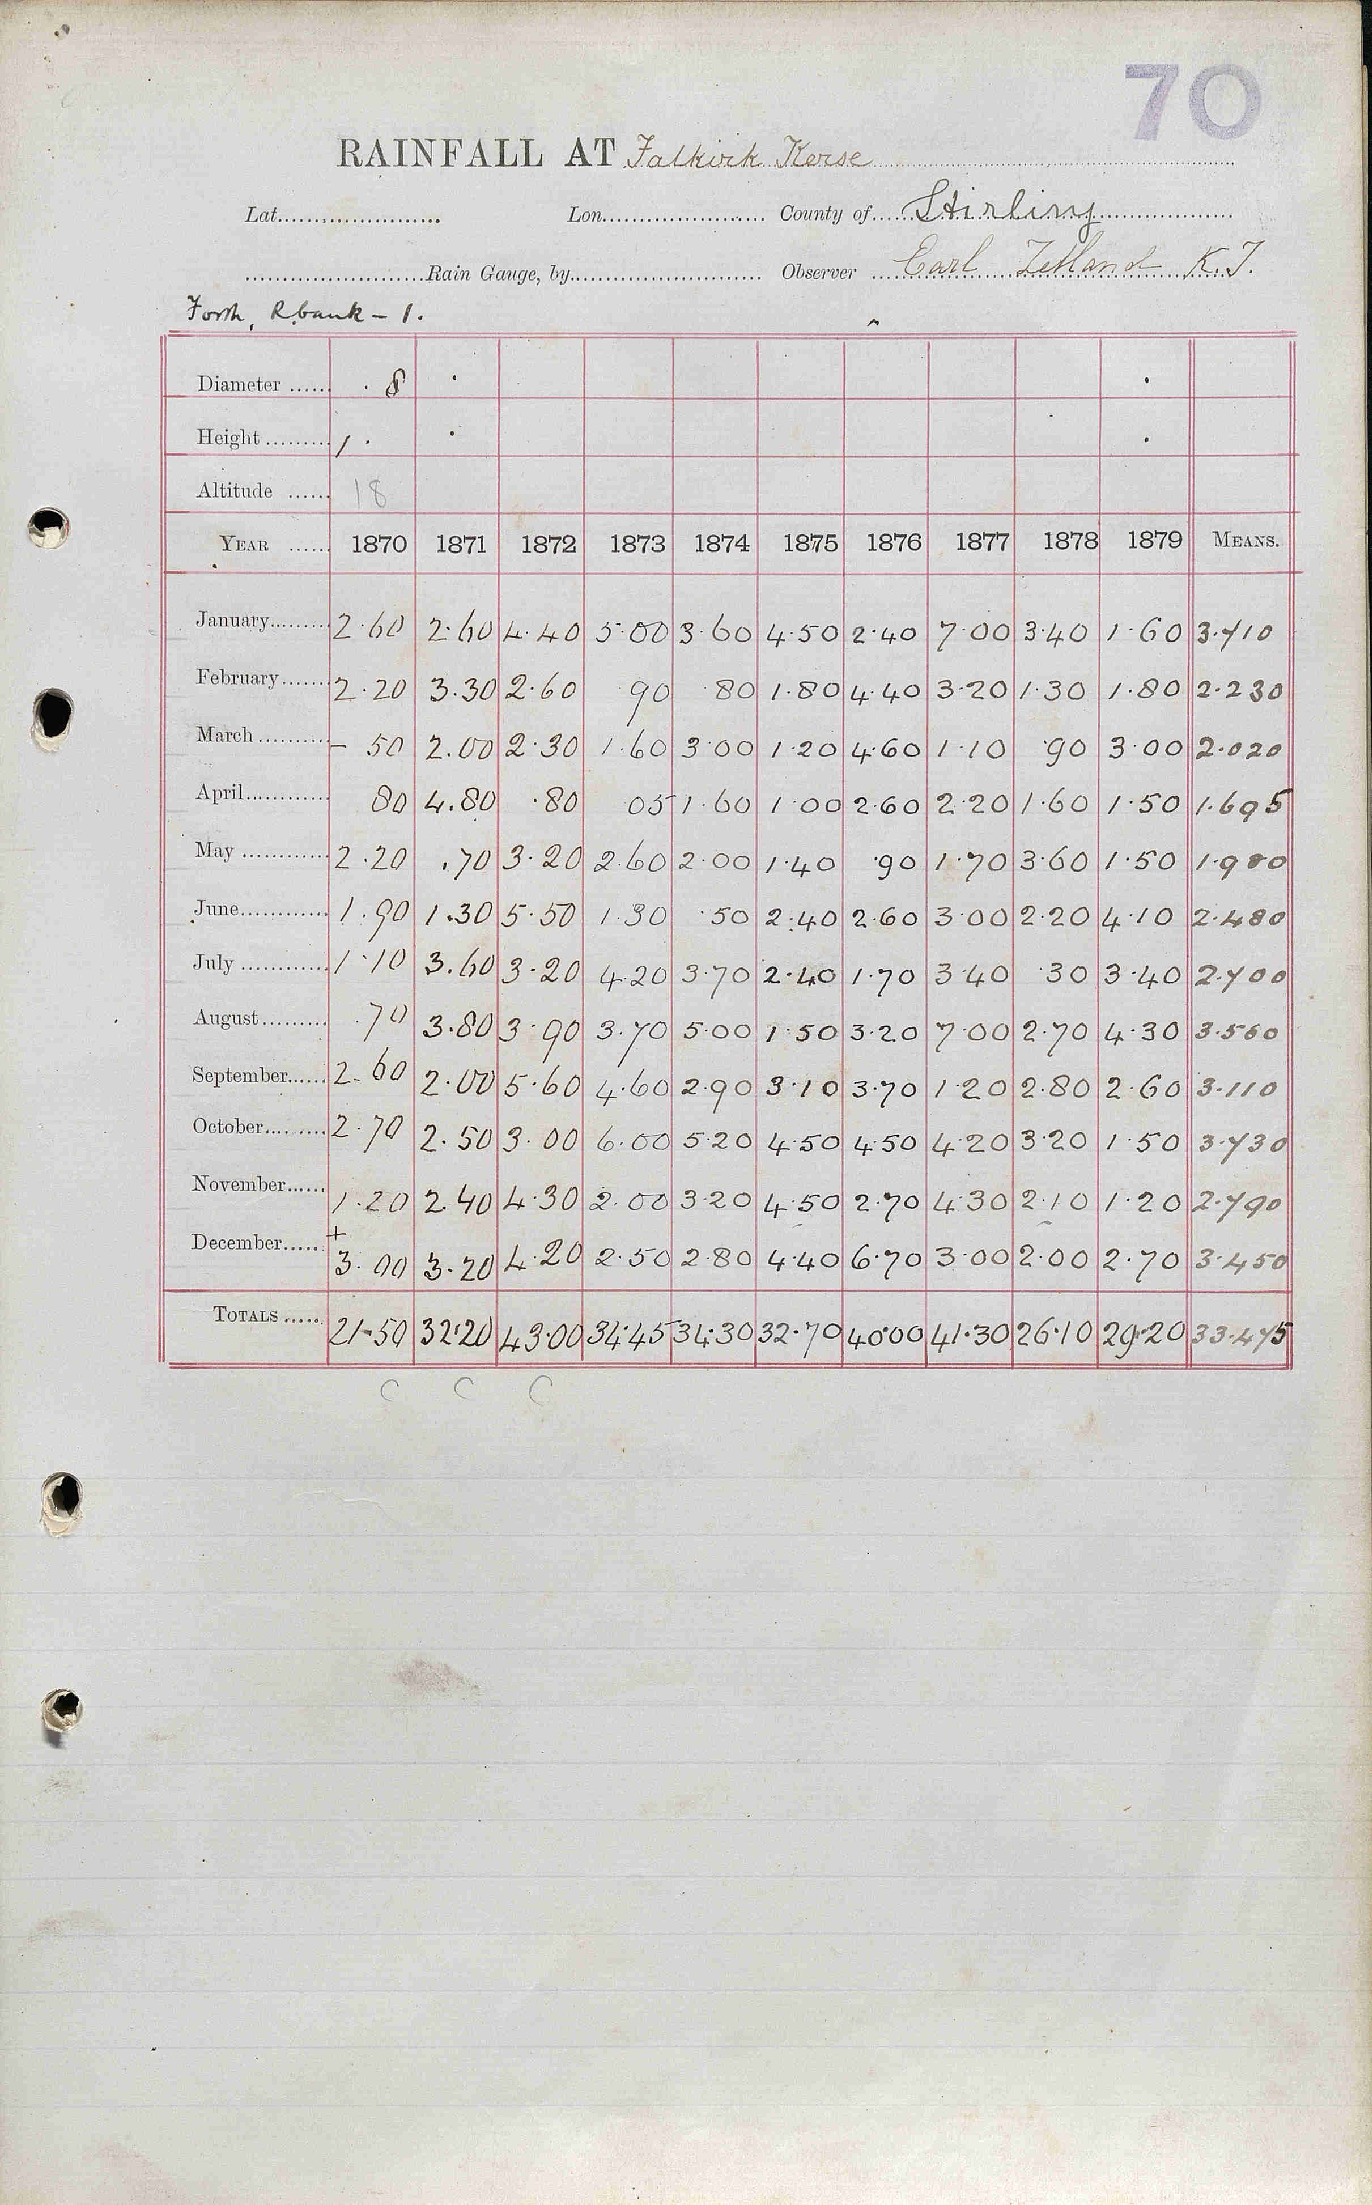 70
RAINFALL AT Falkirk Kerse
Lat...................... Lon....................... County of Stirling
........................Rain Gauge, by........................... Observer Earl Zetland K.T.
Forth, R. bank - 1.
Diameter ...... . 8 . .
Height ......... 1 . . .
Altitude ...... 18
YEAR ...... 1870 1871 1872 1873 1874 1875 1876 1877 1878 1879 MEANS.
January 2.60 2.60 4.40 5.00 3.60 4.50 2.40 7.00 3.40 1.60 3.710
February 2.20 3.30 2.60 .90 .80 1.80 4.40 3.20 1.30 1.80 2.230
March - 50 2.00 2.30 1.60 3.00 1.20 4.60 1.10 .90 3.00 2.020
April 80 4.80 .80 .05 1.60 1.00 2.60 2.20 1.60 1.50 1.695
May 2.20 .70 3.20 2.60 2.00 1.40 .90 1.70 3.60 1.50 1.980
June 1.90 1.30 5.50 1.30 .50 2.40 2.60 3.00 2.20 4.10 2.480
July 1.10 3.60 3.20 4.20 3.70 2.40 1.70 3.40 .30 3.40 2.700
August .70 3.80 3.90 3.70 5.00 1.50 3.20 7.00 2.70 4.30 3.580
September 2.60 2.00 5.60 4.60 2.90 3.10 3.70 1.20 2.80 2.60 3.110
October 2.70 2.50 3.00 6.00 5.20 4.50 4.50 4.20 3.20 1.50 3.730
November 1.20 2.40 4.30 2.00 3.20 4.50 2.70 4.30 2.10 1.20 2.790
December + 3.00 3.20 4.20 2.50 2.80 4.40 6.70 3.00 2.00 2.70 3.450
TOTALS 21.50 32.20 43.00 34.45 34.30 32.70 40.00 41.30 26.10 29.20 33.475
C C C